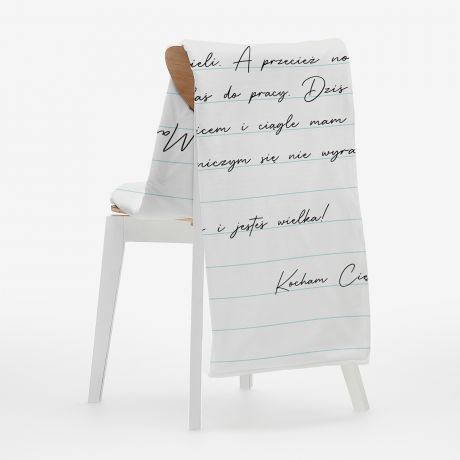 ieli. A przecież no
aś do pracy. Dziś
icem i ciągle mam
niczym się nie wyra
i jesteś wielka!
Kocham Cię